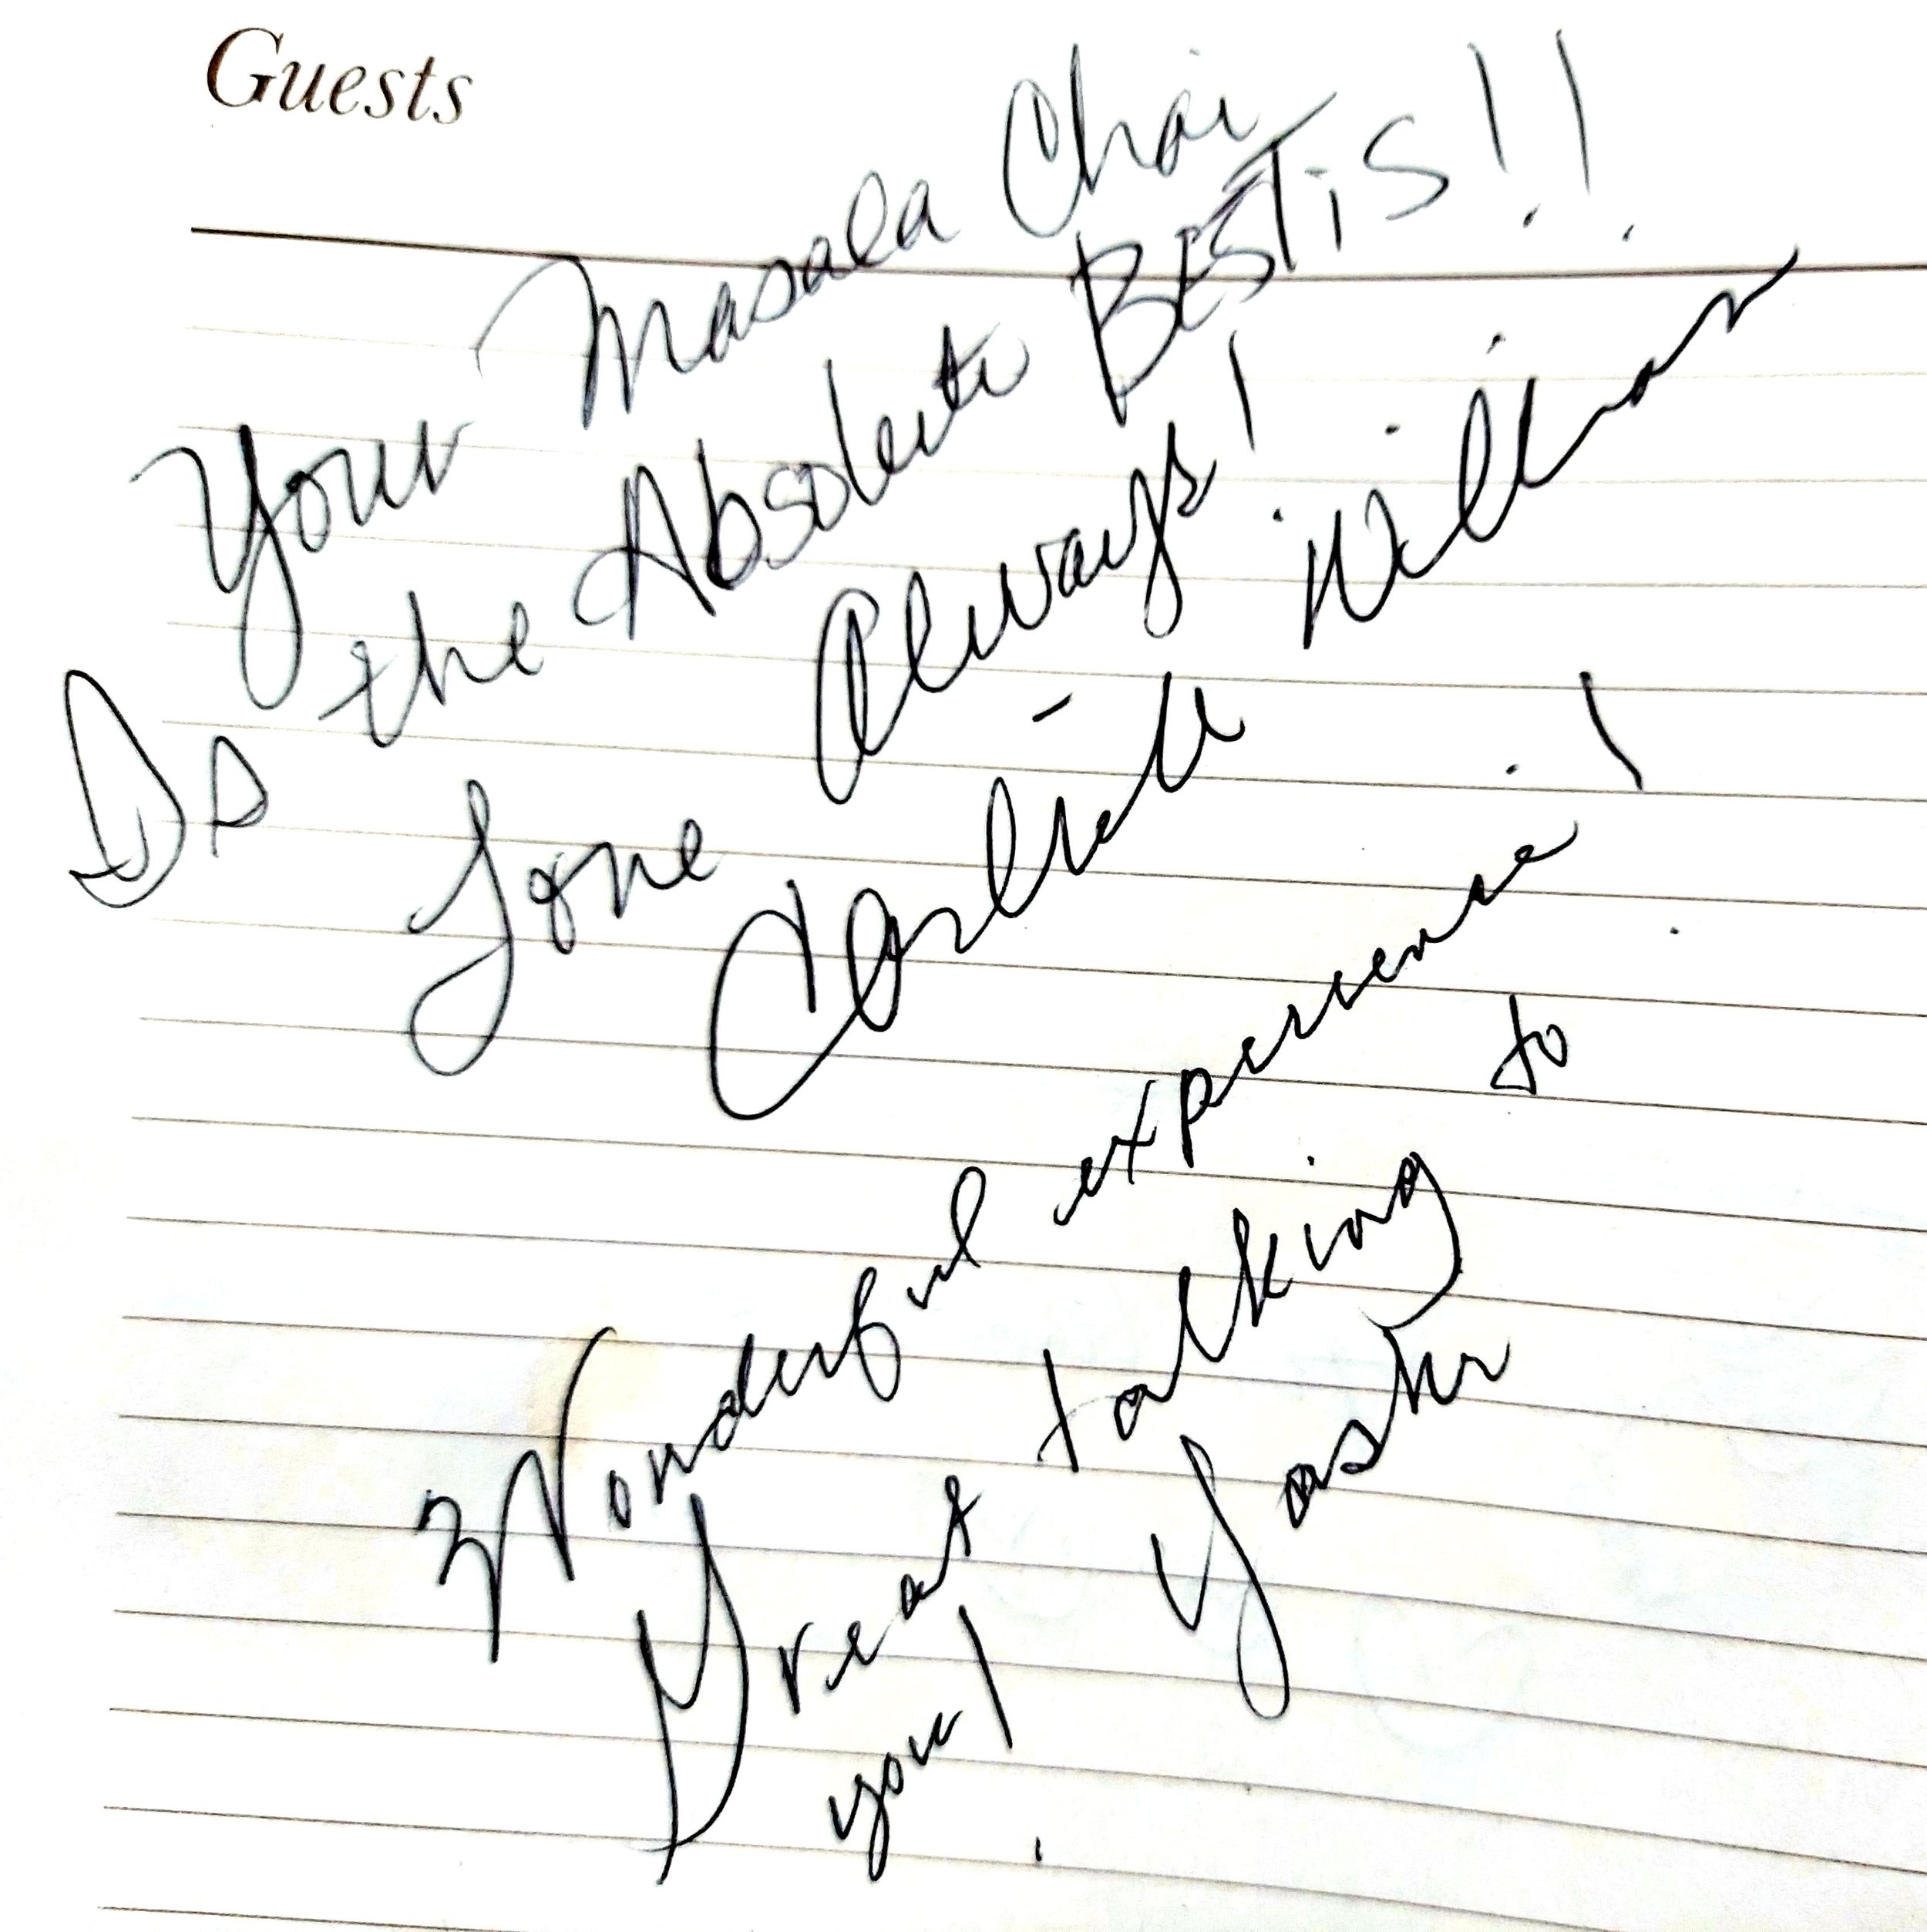 Guests
Your Masala Chai
Is the Absolute BESTiS!!
Love Always!
- William
Wonderful experience!
Great talking to
you! Yashr